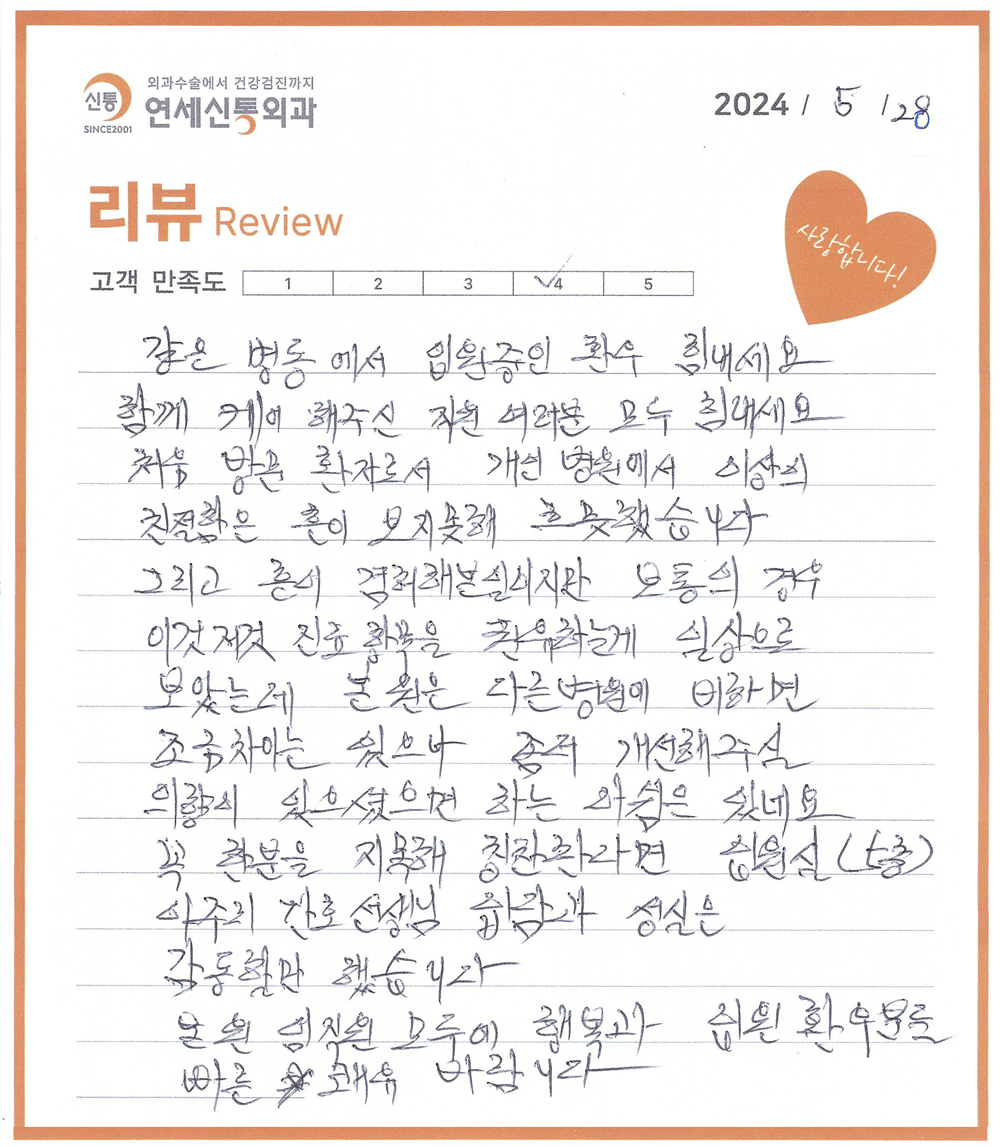 외과수술에서 건강검진까지
신통 연세신통외과
SINCE2001
2024 / 5 / 28
리뷰 Review
사랑합니다!
고객 만족도 1 2 3 4 5
같은 병동에서 입원중인 환우 힘내세요
함께 케어 해주신 직원 여러분 모두 힘내세요
처음 방문 환자로서 개인병원에서 이상의
친절함은 흔이 보지못해 흐뭇했습니다
그리고 흔이 경허해본일이지만 보통의 경우
이것저것 진료항목을 권유하는게 일상으로
보았는데 본원은 다른병원에 비하면
조금차이는 있으나 좀더 개선해주실
의향이 있으셨으면 하는 아쉼은 있네요
꼭 한분을 지목해 칭찬한라면 입원실 (5층)
간호선생님 성실은
감동할만 했습니다
본원 임직원 모두에 행복과 입원환우분들
빠른 쾌유 바랍니다